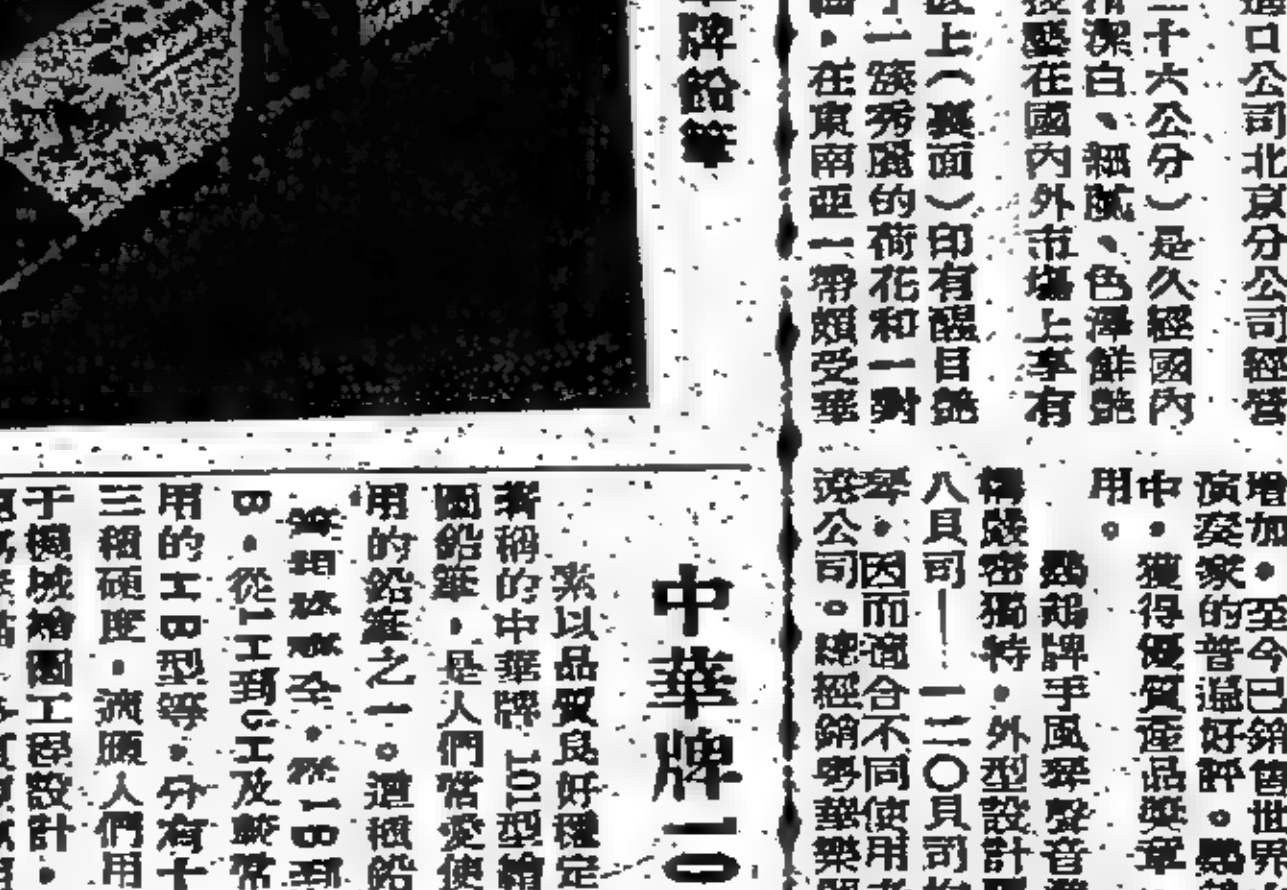 進口公司北京分公司經營
二十六公分)是久經國內
潔白、細膩、色澤鮮艷
在國內外市場上享有
上(裏面)印有醒目艷
一簇秀麗的荷花和一對
，在東南亞一帶頗受華
牌鉛筆
增加，至今已銷售世界
演奏家的普遍好評。鸚
中，獲得優質產品獎章
用。
鸚鵡牌手風琴聲音
構嚴密獨特，外型設計
八貝司——一二〇貝司
琴，因而適合不同使用者
港公司。總經銷粵華樂
中華牌一〇
素以品質良好穩定
著稱的中華牌 101型繪
圖鉛筆，是人們常愛使
用的鉛筆之一。這種鉛
筆，從1B到
B，從1H到6H及較常
用的HB型等，分有十
三種硬度，適應人們用
于機械繪圖工程設計，